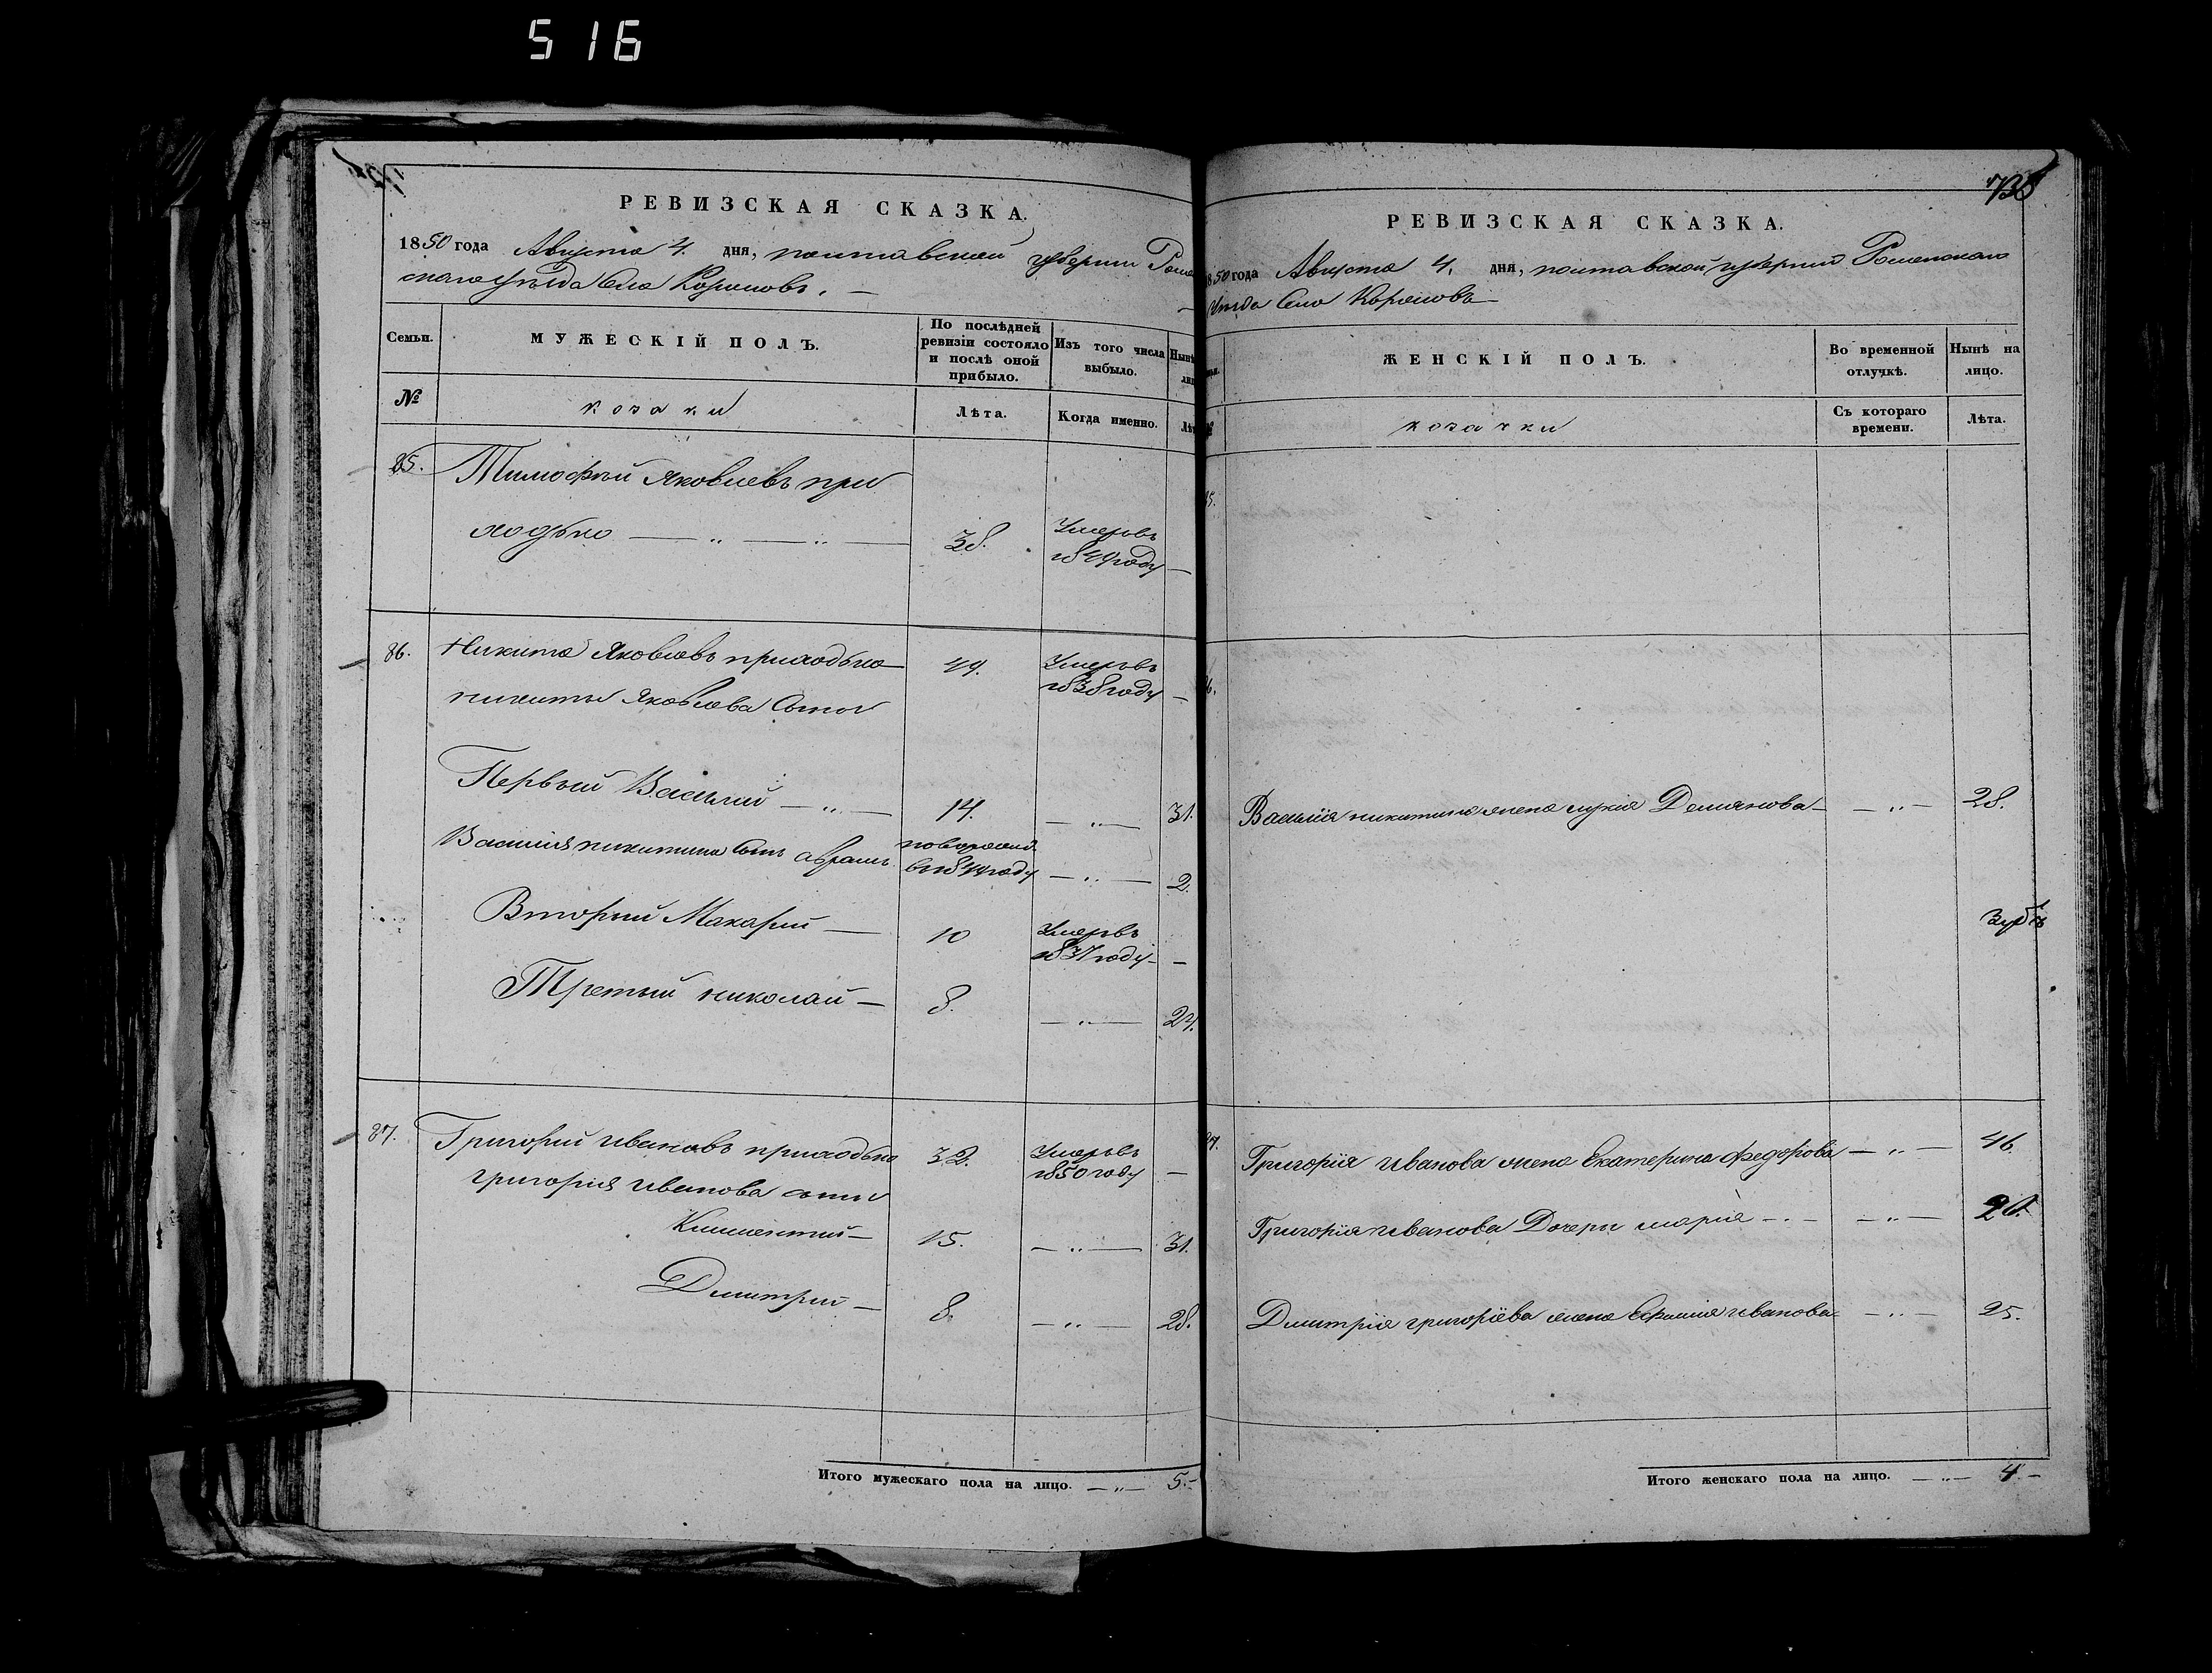 516
РЕВИЗСКАЯ СКАЗКА.
1850 года Августа 4. дня, полтавской губерніи Роме
скаго уѣзда Села Корововъ.
Семьи.
МУЖЕСКІЙ ПОЛЪ.
По послѣдней ревизіи состояло и послѣ оной прибыло.
Изъ того числа выбыло.
Нынѣ
№
козаки
Лѣта.
Когда именно.
85. Тимофѣй Яковлевъ при
ходько 38. Умеръ въ 1849 году
86. Никита Яковлевъ приходько 49. Умеръ въ 1838 году
никиты Яковлева Сыны
Первый Василій 14. 31.
Василія никитина Сынъ аврамъ новорожд. въ 1848 году 2.
Вторый Макарій 10 Умеръ въ 1837 году
Третый николай 8. 24.
87. Григорій ивановъ приходько 32. Умеръ въ 1850 году
григорія иванова сыны
Климентий 15. 31.
Дмитрій 8. 28.
Итого мужескаго пола на лицо. 5.
738
РЕВИЗСКАЯ СКАЗКА.
1850 года Августа 4. дня, полтавской губерніи Роменскаго
Уѣзда Село Корововъ
ЖЕНСКІЙ ПОЛЪ.
Во временной отлучкѣ.
Нынѣ на лицо.
козачки
Съ котораго времени.
Лѣта.
Василія никитина жена лукія Демянова 28.
87. Григорія иванова жена Екатерина федорова 46.
Григорія иванова Дочерь марія 20.
Дмитрія григоріева жена Евфимія иванова 25.
Итого женскаго пола на лицо. 4.